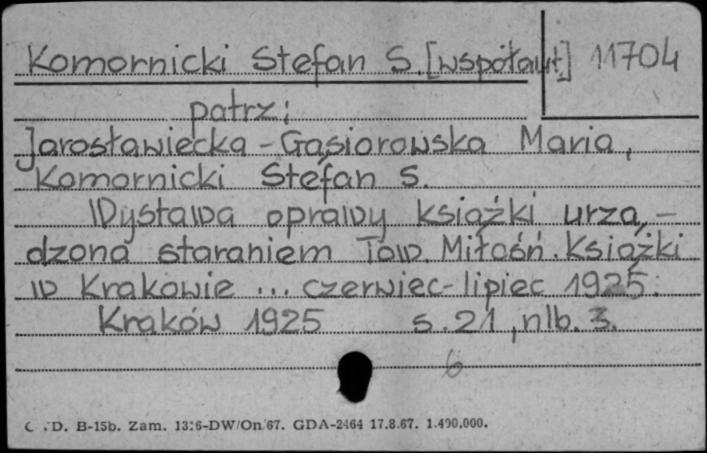 Komornicki Stefan S. [współaut] 11704
patrz:
Jarosławiecka-Gąsiorowska Maria,
Komornicki Stefan S.
Wystawa oprawy książki urzą-
dzona staraniem Tow. Miłośn. Książki
w Krakowie ... czerwiec-lipiec 1925.
Kraków 1925 s. 21, nlb. 3.
6
D. B-15b. Zam. 1316-DW/On/67. GDA-2464 17.8.67. 1.490.000.